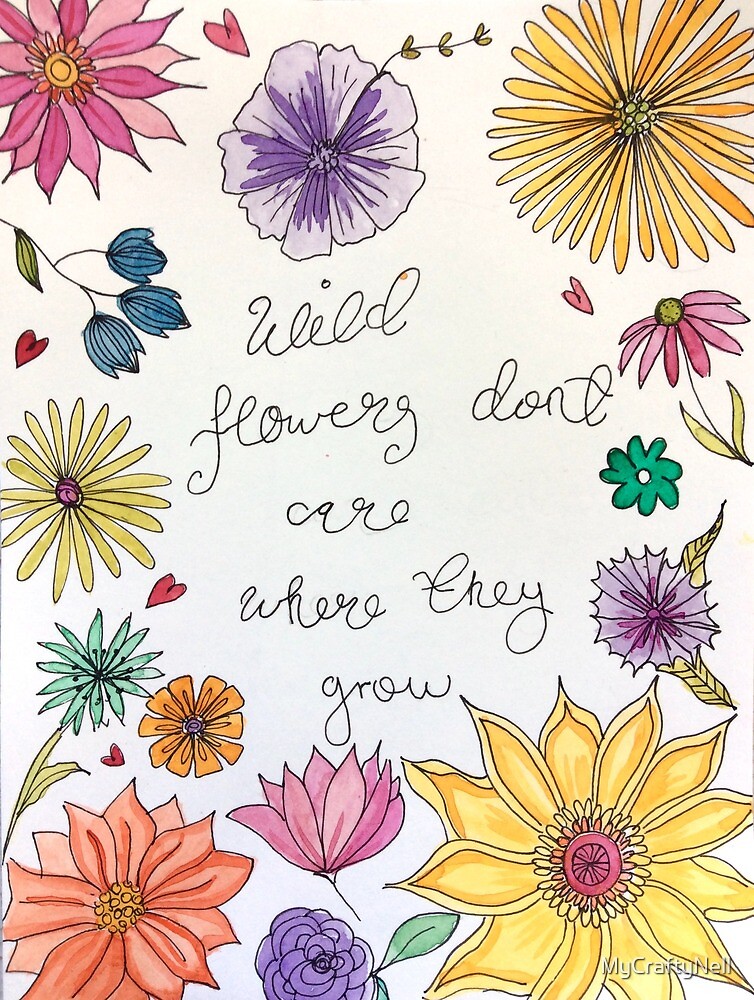 Wild
flowers dont
care
where they
grow
MyCraftyNell